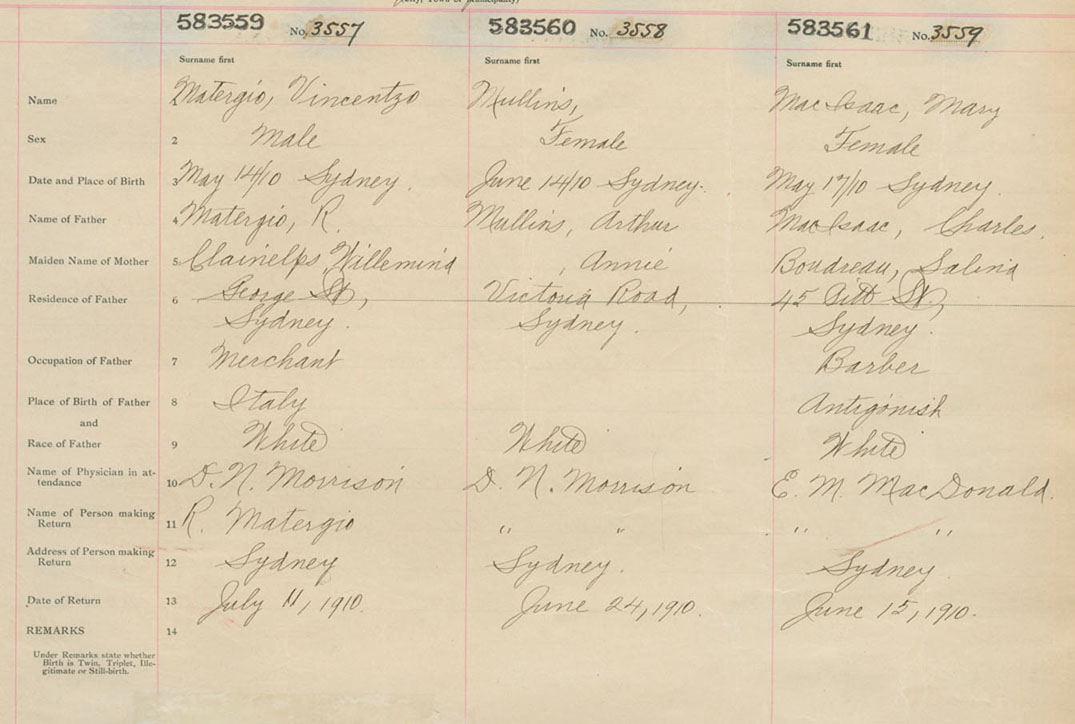 583559 No. 3557 583560 No. 3558 583561 No. 3559
Surname first Surname first Surname first
Name 1 Matergio, Vincentzo Mullins, MacIsaac, Mary
Sex 2 Male Female Female
Date and Place of Birth 3 May 14/10 Sydney. June 14/10 Sydney. May 17/10 Sydney.
Name of Father 4 Matergio, R. Mullins, Arthur MacIsaac, Charles.
Maiden Name of Mother 5 Clainelps, Willemina , Annie Boudreau, Salina
Residence of Father 6 George St, Victoria Road, 45 Pitt St,
Sydney. Sydney. Sydney.
Occupation of Father 7 Merchant Barber
Place of Birth of Father 8 Italy Antigonish
and
Race of Father 9 White White White
Name of Physician in at-
tendance 10 D. N. Morrison D. N. Morrison E. M. MacDonald.
Name of Person making
Return 11 R. Matergio " " " "
Address of Person making
Return 12 Sydney Sydney. Sydney.
Date of Return 13 July 11, 1910. June 24, 1910. June 15, 1910.
REMARKS 14
Under Remarks state whether
Birth is Twin, Triplet, Ille-
gitimate or Still-birth.